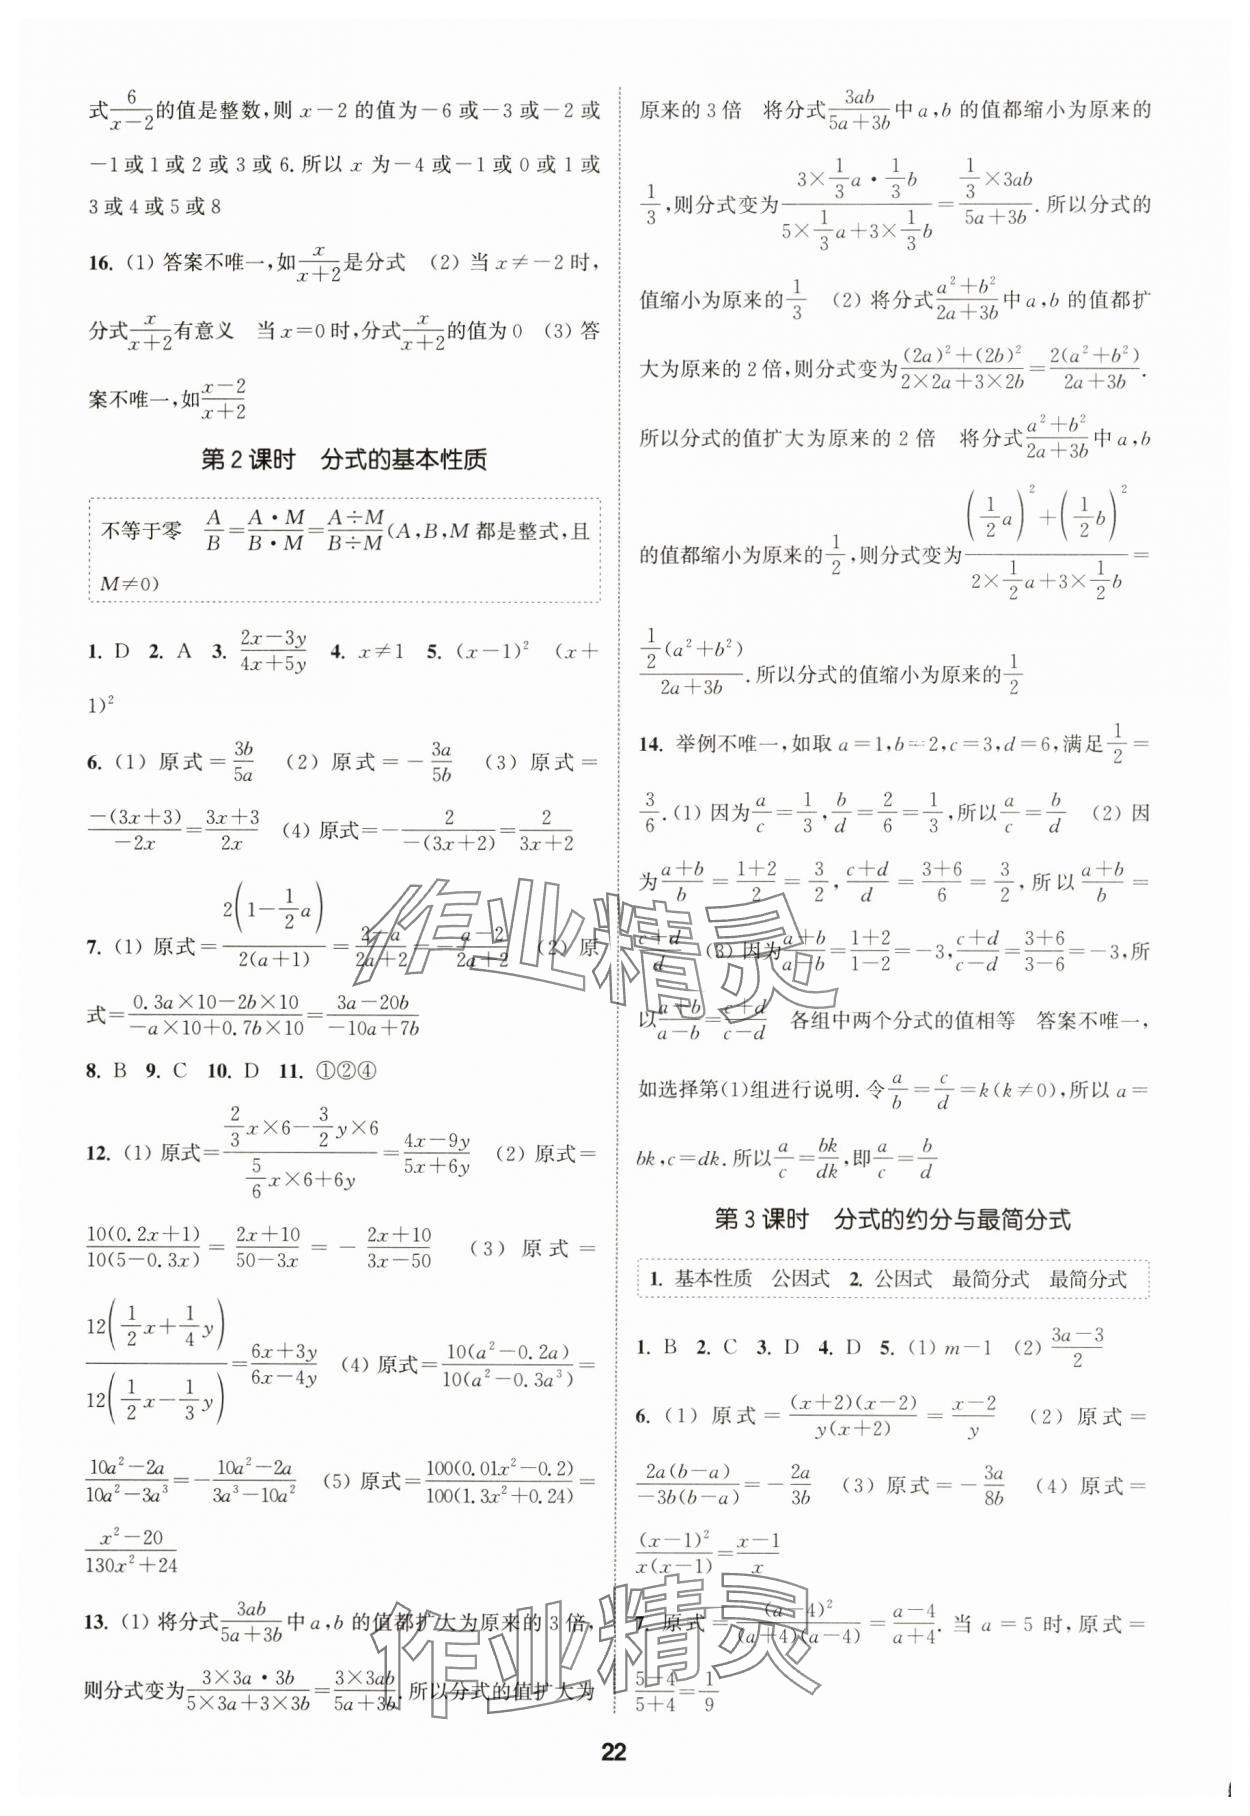 式$\frac{6}{x-2}$的值是整数,则 x-2 的值为-6 或-3 或-2 或
-1 或 1 或 2 或 3 或 6. 所以 x 为-4 或-1 或 0 或 1 或
3 或 4 或 5 或 8
16. (1) 答案不唯一,如$\frac{x}{x+2}$是分式 (2) 当 x≠-2 时,
分式$\frac{x}{x+2}$有意义 当 x=0 时,分式$\frac{x}{x+2}$的值为 0 (3) 答
案不唯一,如$\frac{x-2}{x+2}$
第 2 课时 分式的基本性质
不等于零 $\frac{A}{B}=\frac{A·M}{B·M}=\frac{A÷M}{B÷M}$(A,B,M 都是整式,且
M≠0)
1. D 2. A 3. $\frac{2x-3y}{4x+5y}$ 4. x≠1 5. $(x-1)^2$ (x+
$1)^2$
6. (1) 原式=$\frac{3b}{5a}$ (2) 原式=$-\frac{3a}{5b}$ (3) 原式=
$\frac{-(3x+3)}{-2x}=\frac{3x+3}{2x}$ (4) 原式=$-\frac{2}{-(3x+2)}=\frac{2}{3x+2}$
7. (1) 原式=$\frac{2\left(1-\frac{1}{2}a\right)}{2(a+1)}=\frac{2-a}{2a+2}=-\frac{a-2}{2a+2}$ (2) 原
式=$\frac{0.3a×10-2b×10}{-a×10+0.7b×10}=\frac{3a-20b}{-10a+7b}$
8. B 9. C 10. D 11. ①②④
12. (1) 原式=$\frac{\frac{2}{3}x×6-\frac{3}{2}y×6}{\frac{5}{6}x×6+6y}=\frac{4x-9y}{5x+6y}$ (2) 原式=
$\frac{10(0.2x+1)}{10(5-0.3x)}=\frac{2x+10}{50-3x}=-\frac{2x+10}{3x-50}$ (3) 原式=
$\frac{12\left(\frac{1}{2}x+\frac{1}{4}y\right)}{12\left(\frac{1}{2}x-\frac{1}{3}y\right)}=\frac{6x+3y}{6x-4y}$ (4) 原式=$\frac{10(a^2-0.2a)}{10(a^2-0.3a^3)}$=
$\frac{10a^2-2a}{10a^2-3a^3}=-\frac{10a^2-2a}{3a^3-10a^2}$ (5) 原式=$\frac{100(0.01x^2-0.2)}{100(1.3x^2+0.24)}$=
$\frac{x^2-20}{130x^2+24}$
13. (1) 将分式$\frac{3ab}{5a+3b}$中 a,b 的值都扩大为原来的 3 倍,
则分式变为$\frac{3×3a·3b}{5×3a+3×3b}=\frac{3×3ab}{5a+3b}$. 所以分式的值扩大为
原来的 3 倍 将分式$\frac{3ab}{5a+3b}$中 a,b 的值都缩小为原来的
$\frac{1}{3}$,则分式变为$\frac{3×\frac{1}{3}a·\frac{1}{3}b}{5×\frac{1}{3}a+3×\frac{1}{3}b}=\frac{\frac{1}{3}×3ab}{5a+3b}$. 所以分式的
值缩小为原来的$\frac{1}{3}$ (2) 将分式$\frac{a^2+b^2}{2a+3b}$中 a,b 的值都扩
大为原来的 2 倍,则分式变为$\frac{(2a)^2+(2b)^2}{2×2a+3×2b}=\frac{2(a^2+b^2)}{2a+3b}$.
所以分式的值扩大为原来的 2 倍 将分式$\frac{a^2+b^2}{2a+3b}$中 a,b
的值都缩小为原来的$\frac{1}{2}$,则分式变为$\frac{\left(\frac{1}{2}a\right)^2+\left(\frac{1}{2}b\right)^2}{2×\frac{1}{2}a+3×\frac{1}{2}b}$=
$\frac{\frac{1}{2}(a^2+b^2)}{2a+3b}$. 所以分式的值缩小为原来的$\frac{1}{2}$
14. 举例不唯一,如取 a=1,b=2,c=3,d=6,满足$\frac{1}{2}$=
$\frac{3}{6}$. (1) 因为$\frac{a}{c}=\frac{1}{3}$,$\frac{b}{d}=\frac{2}{6}=\frac{1}{3}$,所以$\frac{a}{c}=\frac{b}{d}$ (2) 因
为$\frac{a+b}{b}=\frac{1+2}{2}=\frac{3}{2}$,$\frac{c+d}{d}=\frac{3+6}{6}=\frac{3}{2}$,所以$\frac{a+b}{b}$=
$\frac{c+d}{d}$ (3) 因为$\frac{a+b}{a-b}=\frac{1+2}{1-2}=-3$,$\frac{c+d}{c-d}=\frac{3+6}{3-6}=-3$,所
以$\frac{a+b}{a-b}=\frac{c+d}{c-d}$ 各组中两个分式的值相等 答案不唯一,
如选择第(1)组进行说明. 令$\frac{a}{b}=\frac{c}{d}$=k(k≠0),所以 a=
bk,c=dk. 所以$\frac{a}{c}=\frac{bk}{dk}$,即$\frac{a}{c}=\frac{b}{d}$
第 3 课时 分式的约分与最简分式
1. 基本性质 公因式 2. 公因式 最简分式 最简分式
1. B 2. C 3. D 4. D 5. (1) m-1 (2) $\frac{3a-3}{2}$
6. (1) 原式=$\frac{(x+2)(x-2)}{y(x+2)}=\frac{x-2}{y}$ (2) 原式=
$\frac{2a(b-a)}{-3b(b-a)}=-\frac{2a}{3b}$ (3) 原式=$-\frac{3a}{8b}$ (4) 原式=
$\frac{(x-1)^2}{x(x-1)}=\frac{x-1}{x}$
7. 原式=$\frac{(a-4)^2}{(a+4)(a-4)}=\frac{a-4}{a+4}$. 当 a=5 时,原式=
$\frac{5-4}{5+4}=\frac{1}{9}$
作业精灵
作业精灵
22